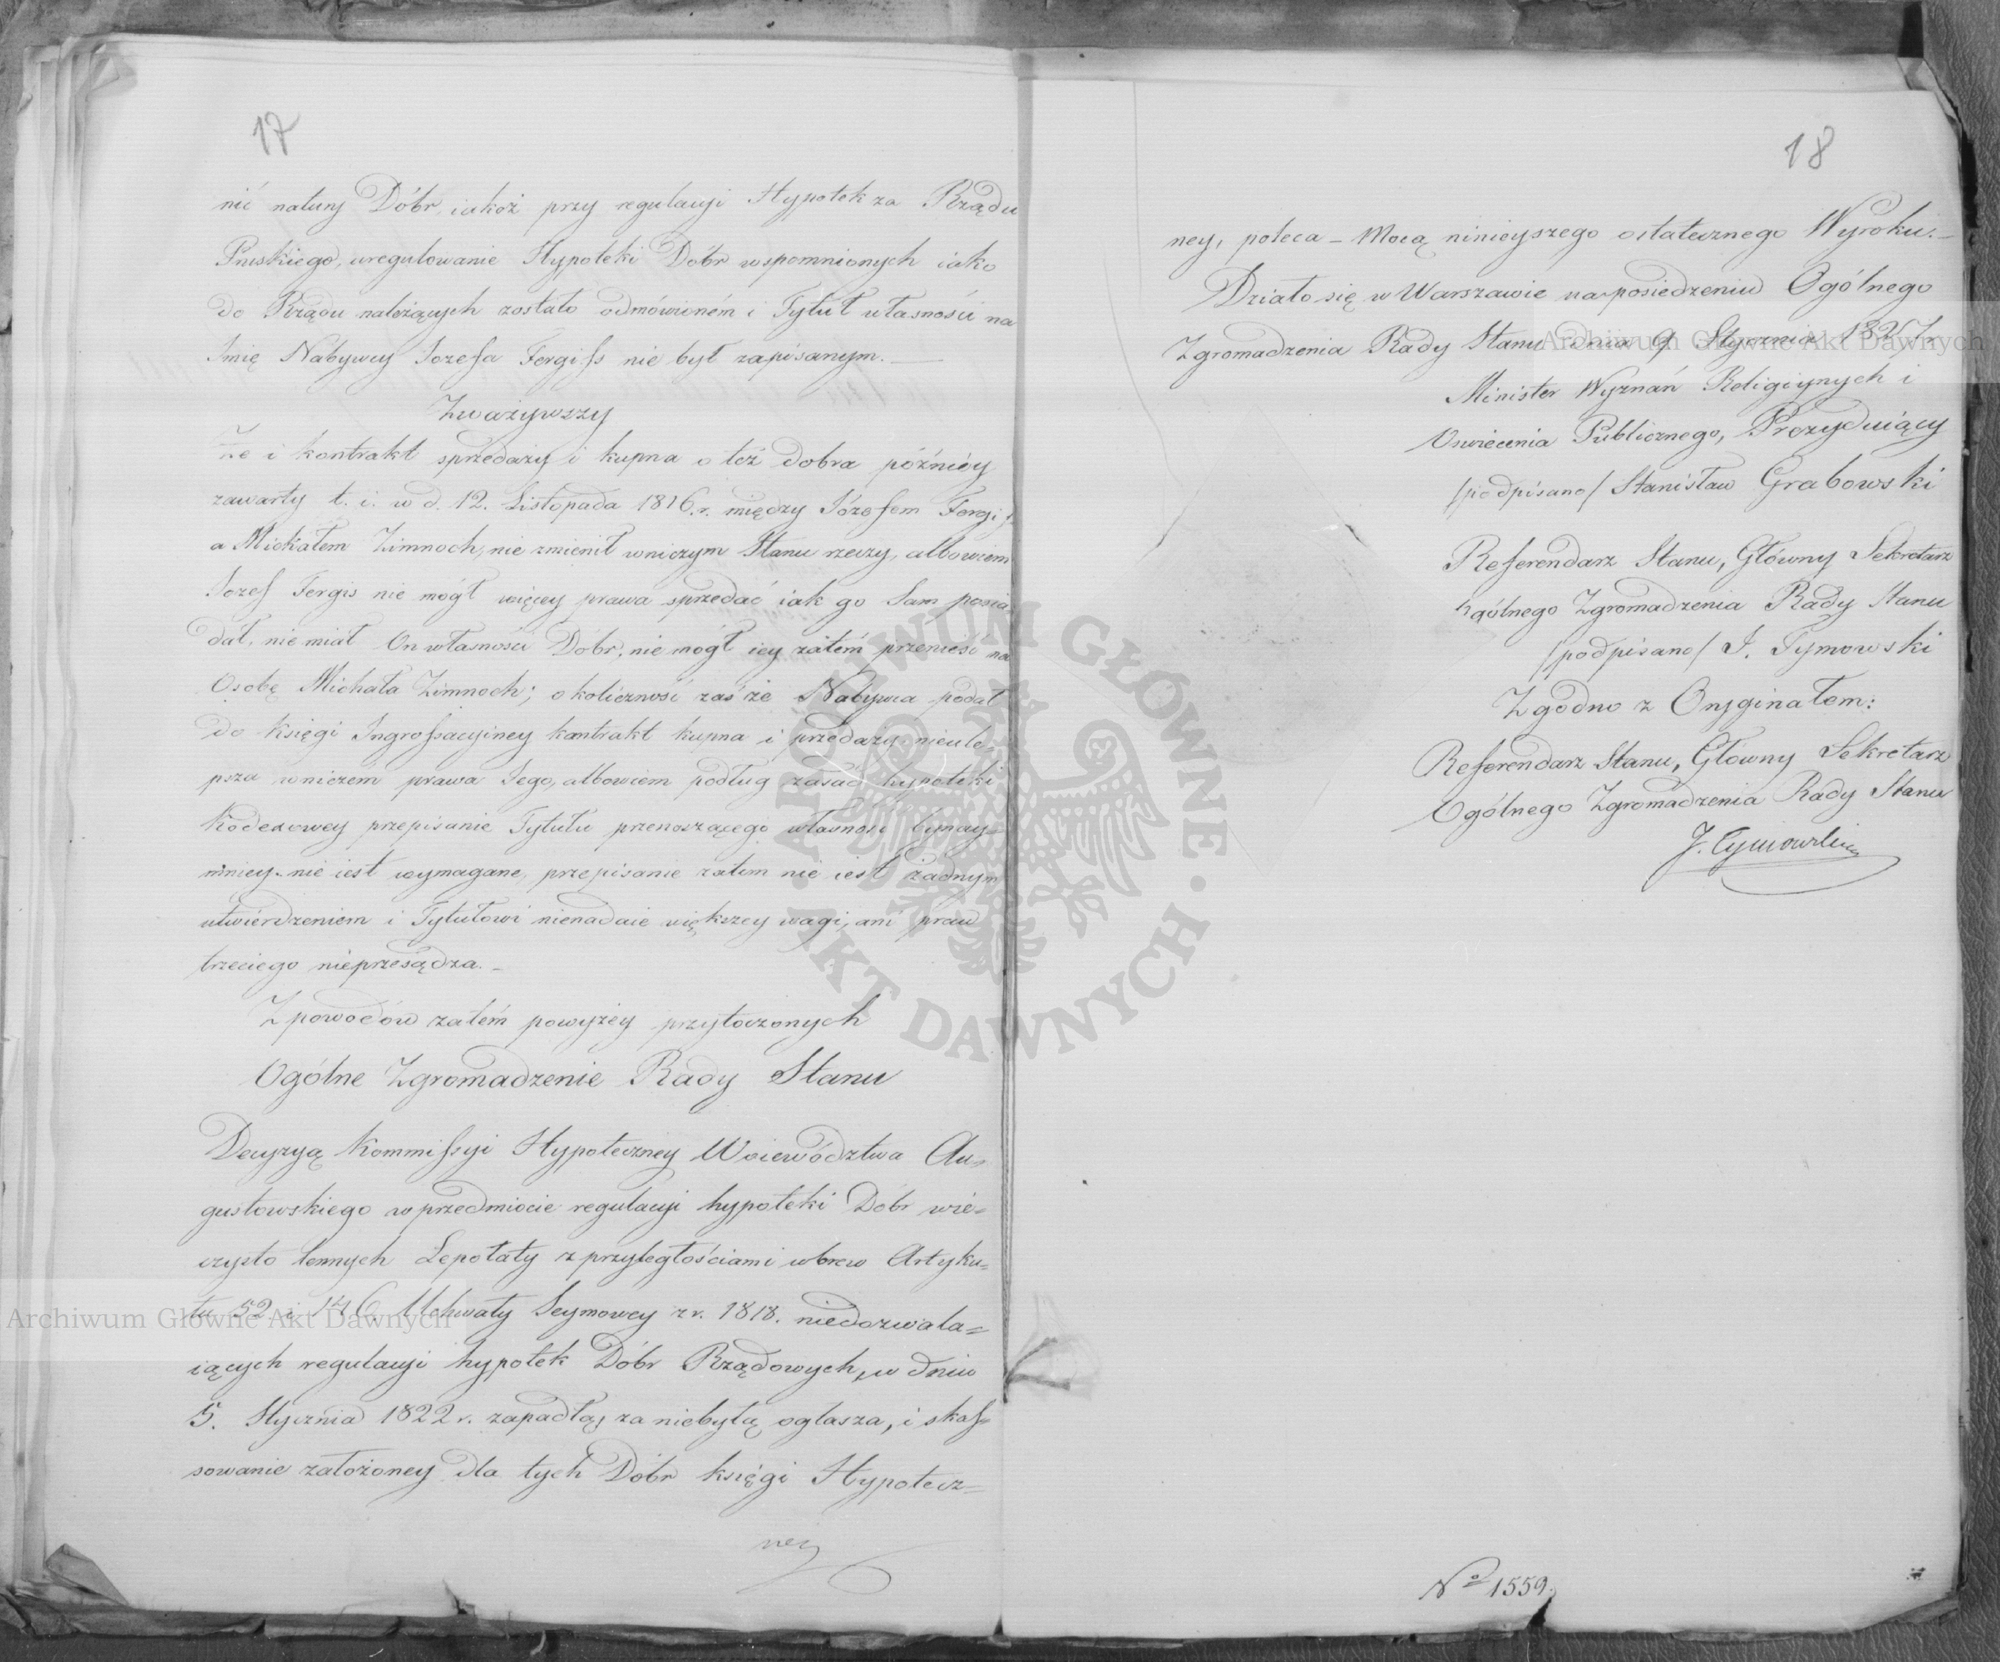 17
nić natury Dóbr, iakoż przy regulacyi Hypotek za Rządu
Pruskiego, uregulowanie Hypoteki Dóbr wspomnionych iako
do Rządu należących zostało odmówioném i Tytuł własności na
Imię Nabywcy Jozefa Fergiss nie był zapisanym.
Zważywszy
Że i kontrakt sprzedaży i kupna o też dobra późniey
zawarty t. i. w d. 12. Listopada 1816. r. między Józefem Fergiss
a Michałem Zimnoch, nie zmienił wniczym Stanu rzeczy, albowiem
Jozef Fergis nie mógł więcey prawa sprzedać iak go Sam posia
dał, nie miał On własności Dobr, nie mógł iey zatém przenieść na
Osobę Michała Zimnoch; okoliczność zaś że Nabywca podał
do księgi Ingrossacyiney kontrakt kupna i przedaży nieule-
psza wniczem prawa Jego, albowiem podług zasad hypoteki
Kodexowey przepisanie Tytułu przenoszącego własność bynay-
mniey nie iest wymagane, przepisanie zatem nie iest żadnym
utwierdzeniem i Tytułowi nienadaie większey wagi, ani praw
trzeciego nieprzesądza. -
Z powodów zatém powyżey przytoczonych
Ogólne Zgromadzenie Rady Stanu
Decyzyą Kommissyi Hypoteczney Woiewództwa Au-
gustowskiego w przedmiocie regulacyi hypoteki Dóbr wie-
czysto lennych Lepołaty z przyległościami wbrew Artyku-
łu 52 i 146 Uchwały Seymowey z r. 1818. niedozwala=
iących regulacyi hypotek Dóbr Rządowych, w dniu
5. Stycznia 1822 r. zapadłą, za niebyłą ogłasza, i skas-
sowanie założoney dla tych Dóbr księgi Hypotecz=
ney
18
ney, poleca - Mocą ninieyszego ostatecznego Wyroku. -
Działo się w Warszawie na posiedzeniu Ogólnego
Zgromadzenia Rady Stanu dnia 9 Stycznia
Minister Wyznań Religiynych i
Oswiecenia Publicznego, Prezyduiący
/podpisano/ Stanisław Grabowski
Referendarz Stanu, Główny Sekretarz
Ogólnego Zgromadzenia Rady Stanu
/podpisano/ J. Tymowski
Zgodno z Oryginałem:
Referendarz Stanu, Główny Sekretarz
Ogólnego Zgromadzenia Rady Stanu
J. Tymowski
No 1559.
ARCHIWUM GŁÓWNE AKT DAWNYCH
Archiwum Główne Akt Dawnych
Archiwum Główne Akt Dawnych